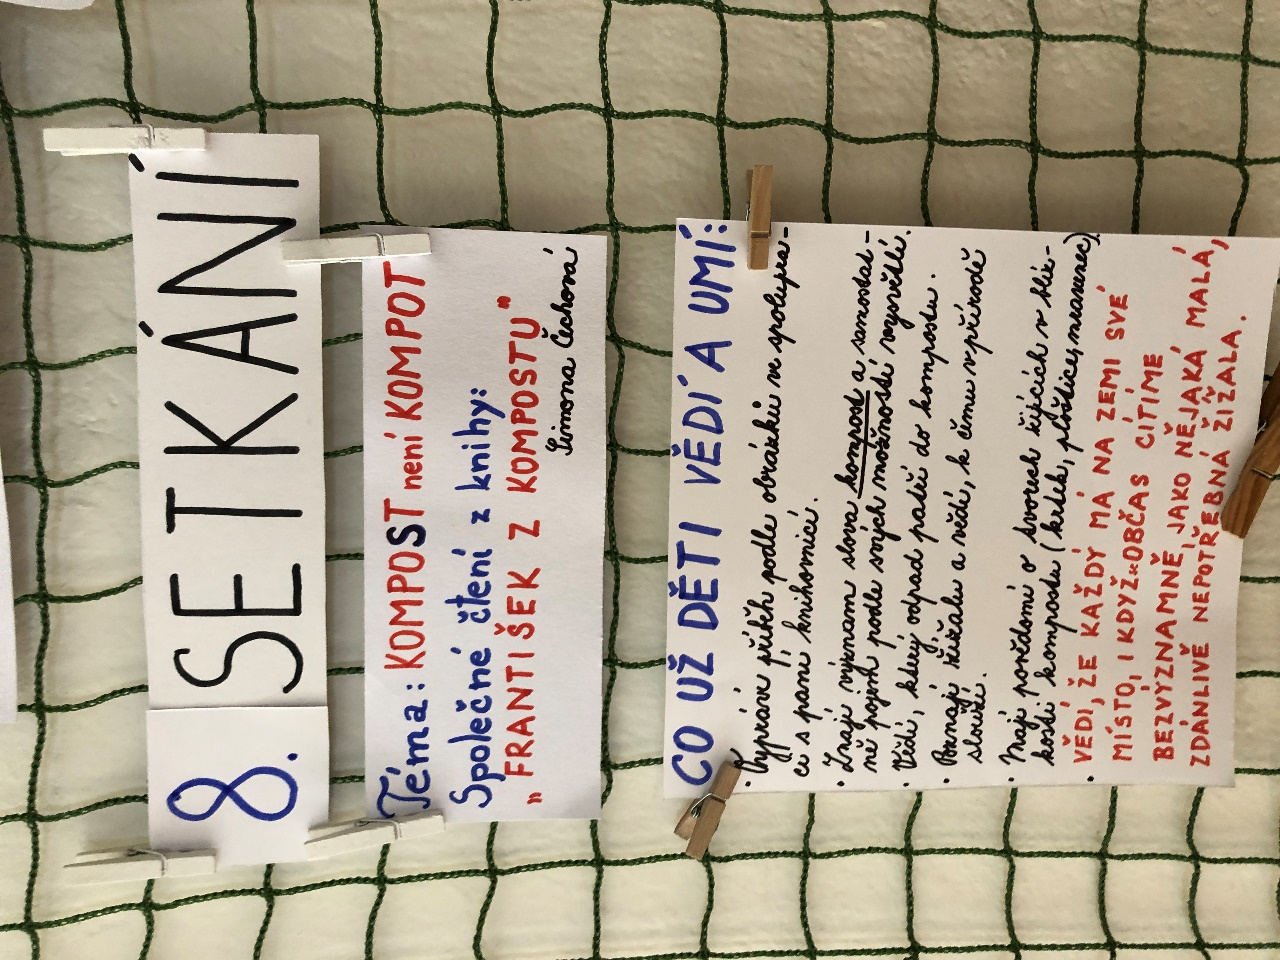 8. SETKÁNÍ
Téma: KOMPOST není KOMPOT
Společné čtení z knihy:
„FRANTIŠEK Z KOMPOSTU"
Simona Čechová
CO UŽ DĚTI VĚDÍ A UMÍ:
• Vypráví příběh podle obrázků ve spoluprá-
ci s paní knihovnicí.
• Znají význam slova kompost a samostat-
ně pojem podle svých možností vysvětlí.
• Vědí, který odpad patří do kompostu.
• Poznají žížalu a vědí, k čemu v přírodě
slouží.
• Mají povědomí o tvorech žijících v blíz-
kosti kompostu (krtek, ploštice, mravenec)
• VĚDÍ, ŽE KAŽDÝ MÁ NA ZEMI SVÉ
MÍSTO, I KDYŽ SE OBČAS CÍTÍME
BEZVÝZNAMNĚ JAKO NĚJAKÁ MALÁ,
ZDÁNLIVĚ NEPOTŘEBNÁ ŽÍŽALA.